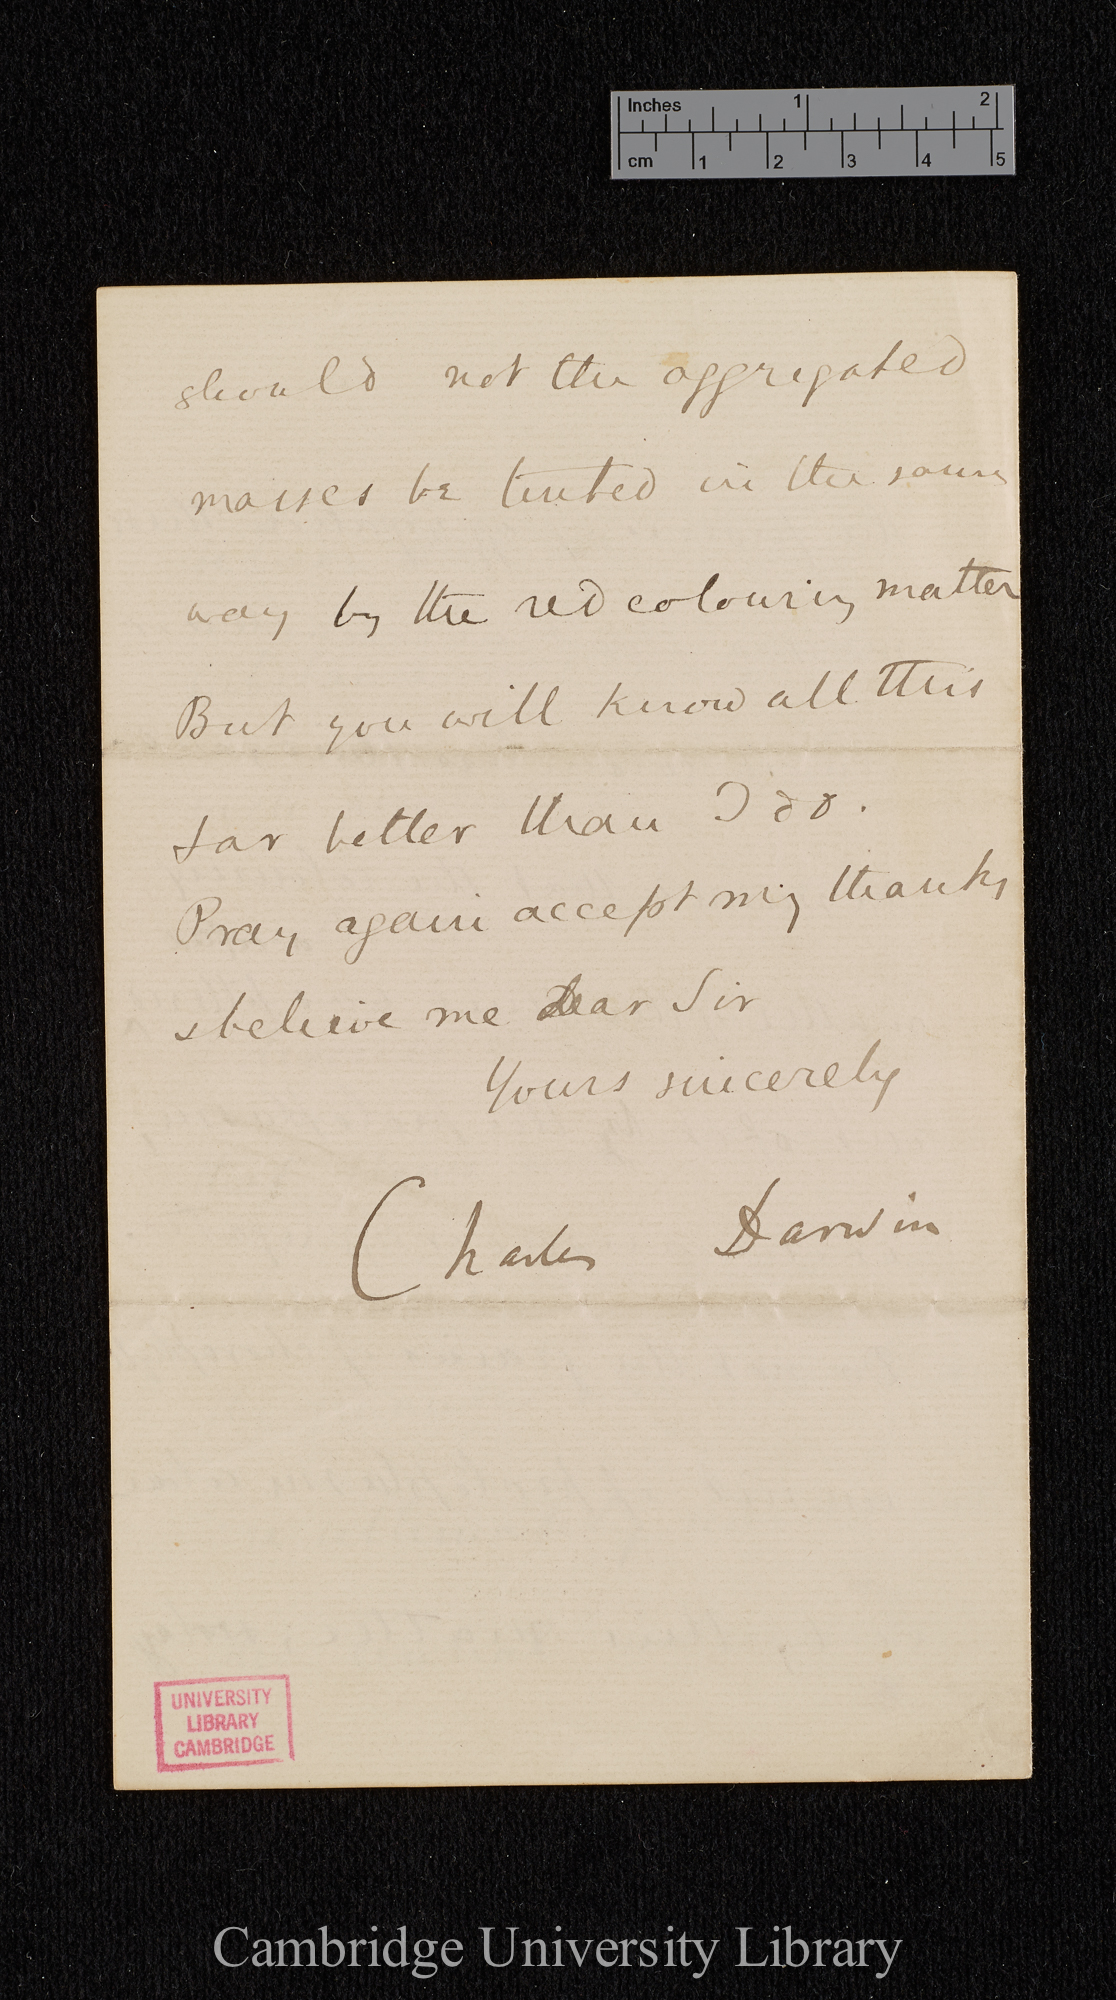 Inches 1 2
cm 1 2 3 4 5
should not the aggregated
masses be tinted in the same
way by the red colouring matter
But you will know all this
far better than I do.
Pray again accept my thanks
& believe me Dear Sir
Yours sincerely
Charles Darwin
UNIVERSITY
LIBRARY
CAMBRIDGE
Cambridge University Library